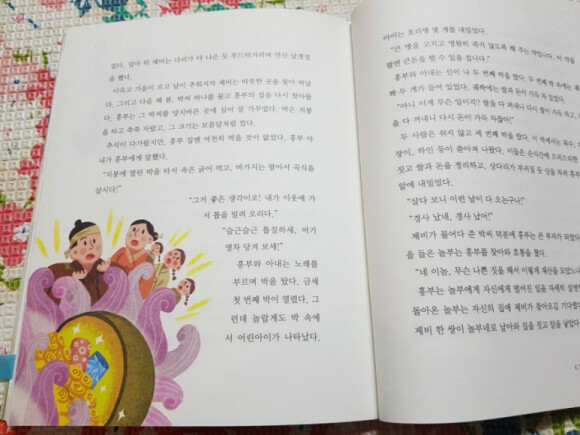 었다. 얼마 뒤 제비는 다리가 다 나은 듯 푸드덕거리며 연신 날갯짓
을 했다.
이윽고 가을이 오고 날이 추워지자 제비는 따뜻한 곳을 찾아 떠났
다. 그리고 다음 해 봄, 박씨 하나를 물고 흥부의 집을 다시 찾아왔
다. 흥부는 그 박씨를 양지바른 곳에 심어 잘 가꾸었다. 박은 지붕
을 타고 쭉쭉 자랐고, 그 크기는 보름달처럼 컸다.
추석이 다가왔지만, 흥부 집엔 여전히 먹을 것이 없었다. 흥부 아
내가 흥부에게 말했다.
"지붕에 열린 박을 타서 속은 긁어 먹고, 바가지는 팔아서 곡식을
삽시다!"
"그거 좋은 생각이오! 내가 이웃에 가
서 톱을 빌려 오리다."
"슬근슬근 톱질하세, 어기
영차 당겨 보세!"
흥부와 아내는 노래를
부르며 박을 탔다. 금세
첫 번째 박이 열렸다. 그
런데 놀랍게도 박 속에
서 어린아이가 나타났다.
아이는 호리병 몇 개를 내밀었다.
"큰 병을 고치고 영원히 죽지 않도록 해 주는 약입니다. 이 약을
팔면 큰돈을 벌 수 있을 겁니다."
흥부와 아내는 신이 나 두 번째 박을 탔다. 두 번째 박 속에는 궤
짝 두 개가 들어 있었다. 궤짝에는 쌀과 돈이 가득 차 있었다.
"아니 이게 무슨 일이지? 쌀을 다 퍼내니 다시 쌀이 가득 차고,
을 다 꺼내니 다시 돈이 가득 차잖아!"
두 사람은 쉬지 않고 세 번째 박을 탔다. 이 박에서는 목수,
장이, 하인 등이 쏟아져 나왔다. 이들은 순식간에 으리으리한
짓고 쌀과 돈을 정리하고, 상다리가 부러질 듯 상을 차려 흥부
앞에 내밀었다.
"살다 보니 이런 날이 다 오는구나!"
"경사 났네, 경사 났어!"
제비가 물어다 준 박씨 덕분에 흥부는 큰 부자가 되었다.
을 들은 놀부는 흥부를 찾아와 호통을 쳤다.
"네 이놈, 무슨 나쁜 짓을 해서 이렇게 재산을 모았느냐
흥부는 놀부에게 자신에게 벌어진 일을 자세히 설명
돌아온 놀부는 자신의 집에 제비가 찾아오길 기다렸다
제비 한 쌍이 놀부네로 날아와 집을 짓고 알을 낳았다.